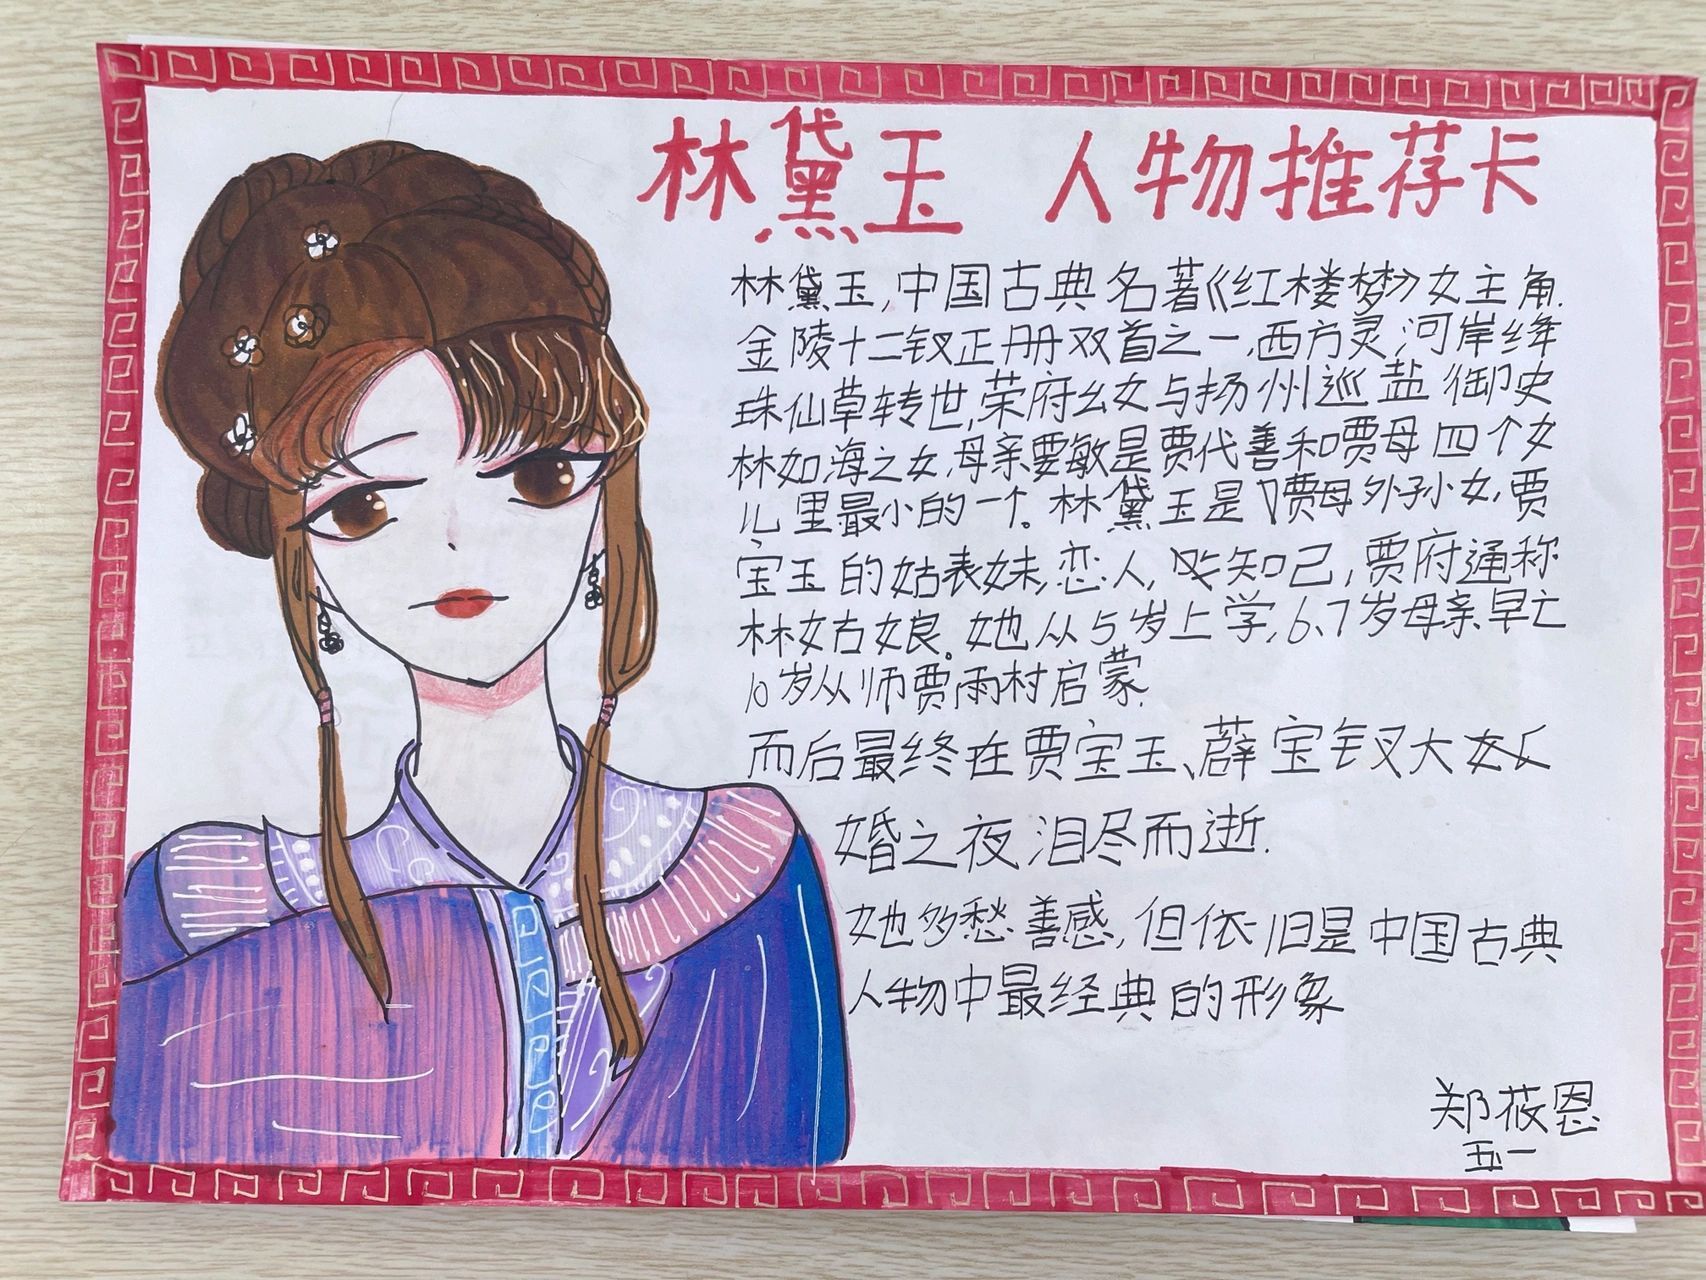 林黛玉 人物推荐卡
林黛玉,中国古典名著《红楼梦》女主角.
金陵十二钗正册双首之一,西方灵河岸绛
珠仙草转世,荣府幺女与扬州巡盐御史
林如海之女,母亲要敏是贾代善和贾母四个女
儿里最小的一个。林黛玉是贾母外孙女,贾
宝玉的姑表妹,恋人,知己,贾府通称
林姑娘。她从5岁上学,6、7岁母亲早亡
10岁从师贾雨村启蒙.
而后最终在贾宝玉、薜宝钗大
婚之夜泪尽而逝.
她多愁善感,但依旧是中国古典
人物中最经典的形象
郑莜恩
五一